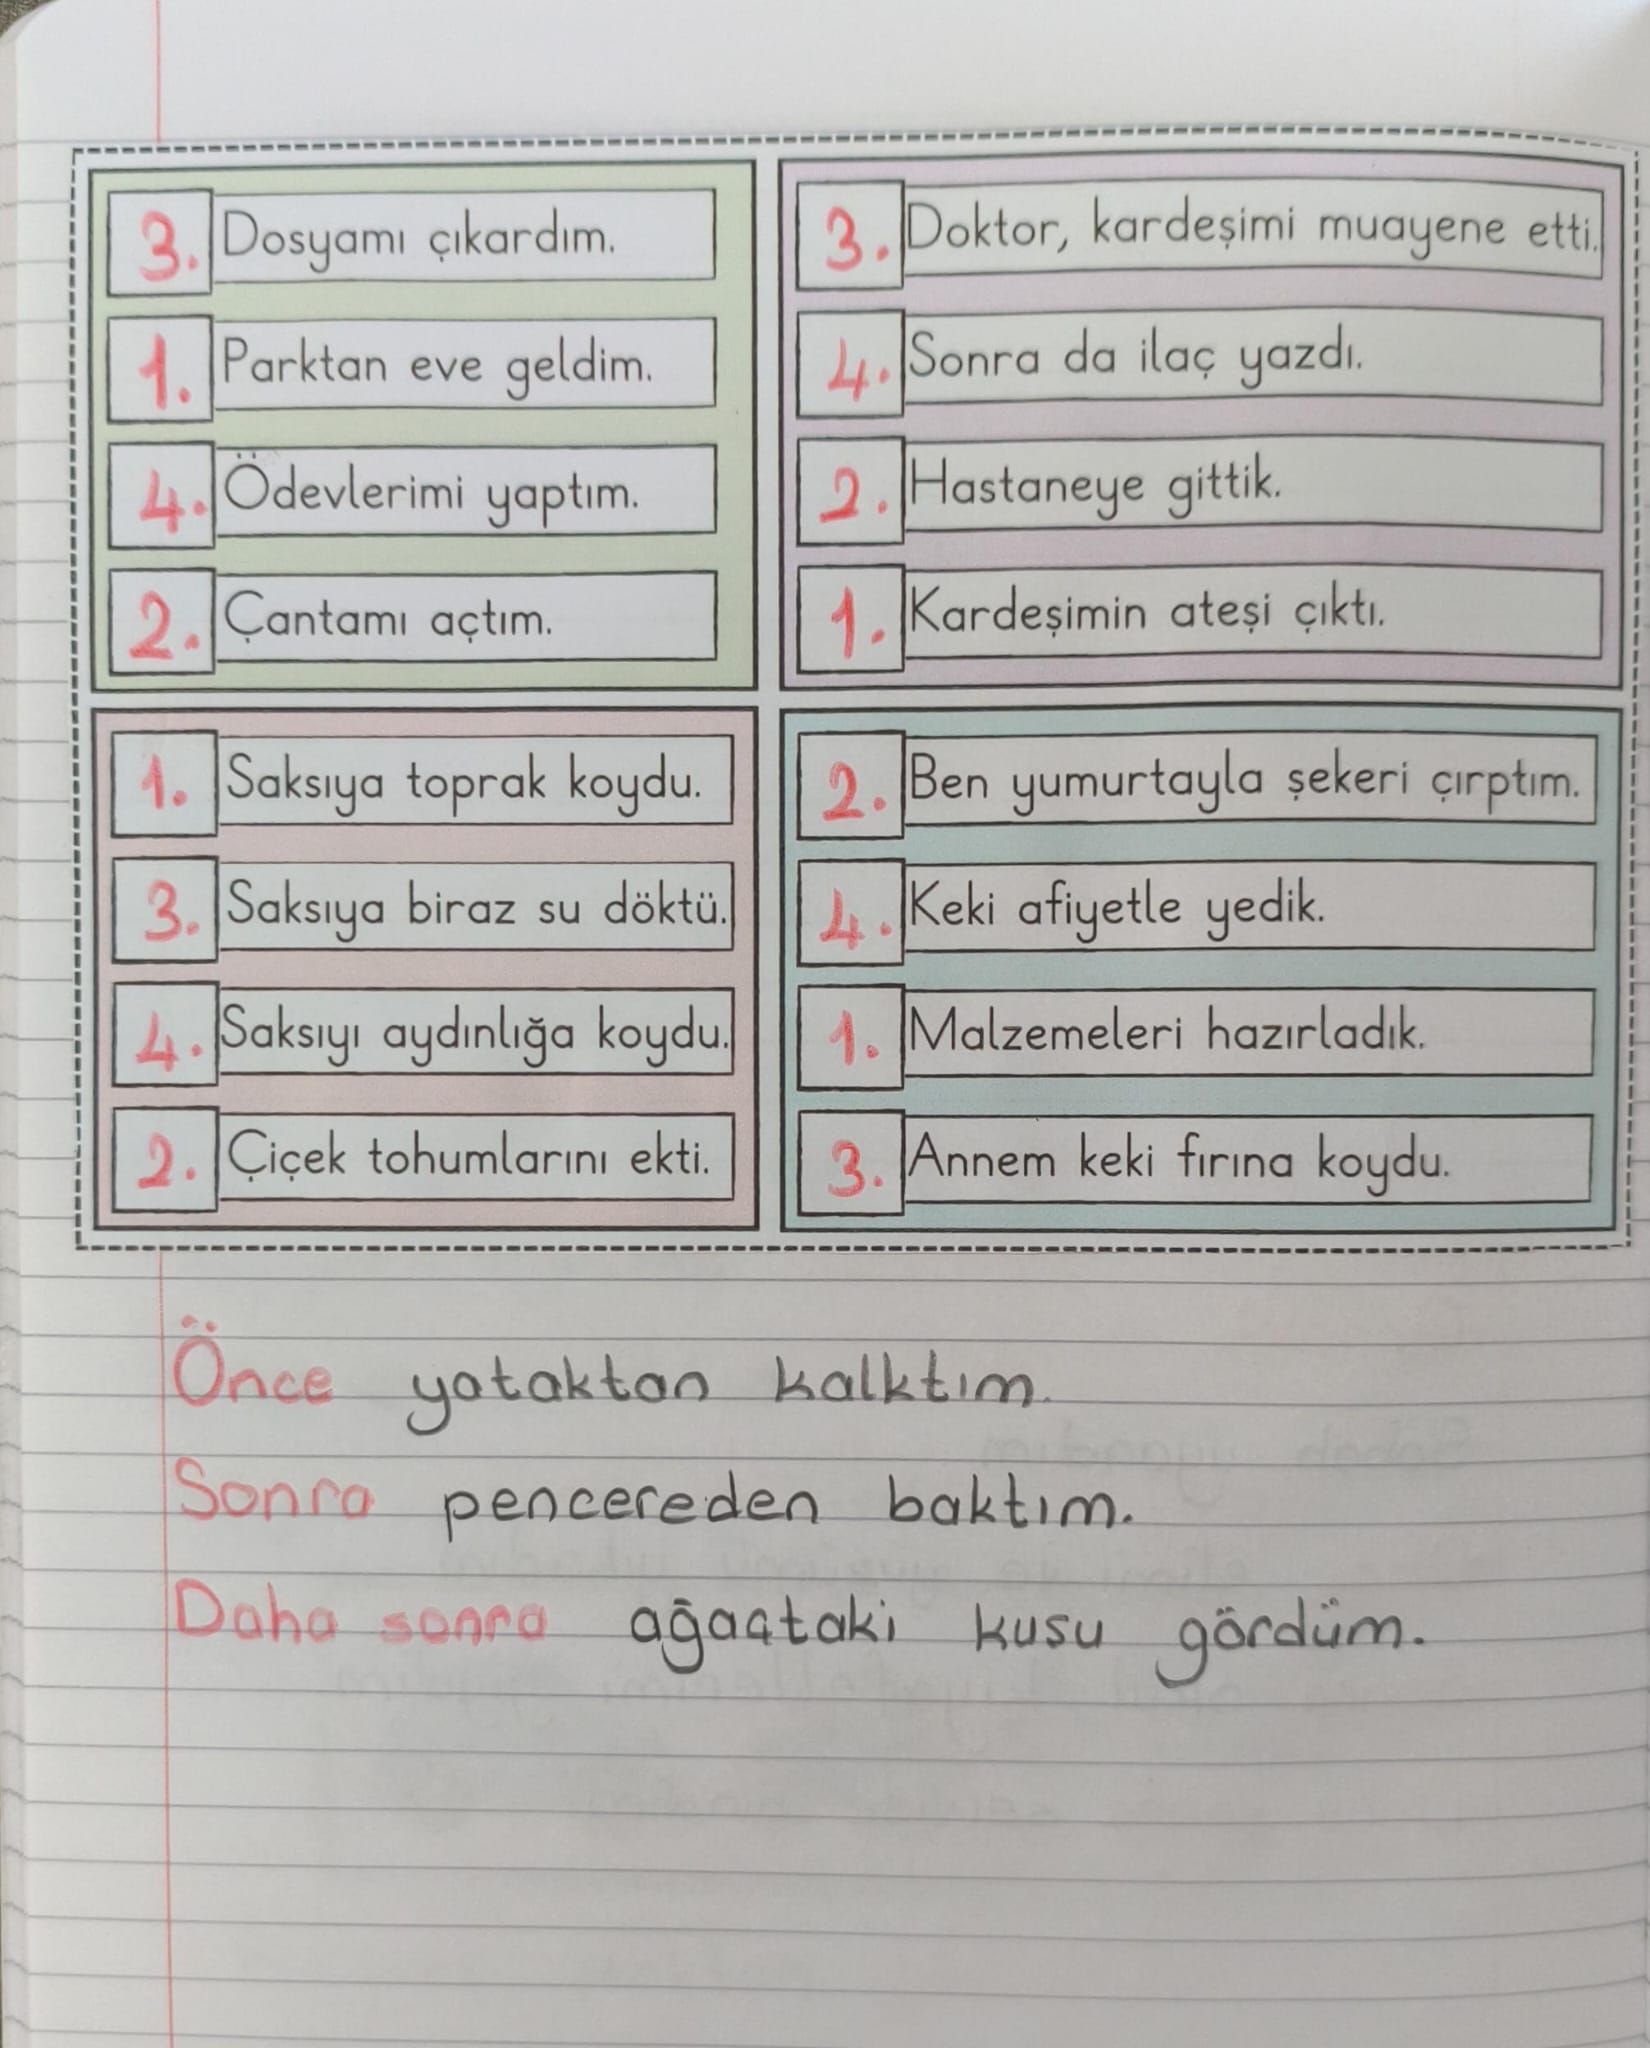 3. Dosyamı çıkardım.
1. Parktan eve geldim.
4. Ödevlerimi yaptım.
2. Çantamı açtım.
3. Doktor, kardeşimi muayene etti.
4. Sonra da ilaç yazdı.
2. Hastaneye gittik.
1. Kardeşimin ateşi çıktı.
1. Saksıya toprak koydu.
3. Saksıya biraz su döktü.
4. Saksıyı aydınlığa koydu.
2. Çiçek tohumlarını ekti.
2. Ben yumurtayla şekeri çırptım.
4. Keki afiyetle yedik.
1. Malzemeleri hazırladık.
3. Annem keki fırına koydu.
Önce yataktan kalktım.
Sonra pencereden baktım.
Daha sonra ağaçtaki kusu gördüm.